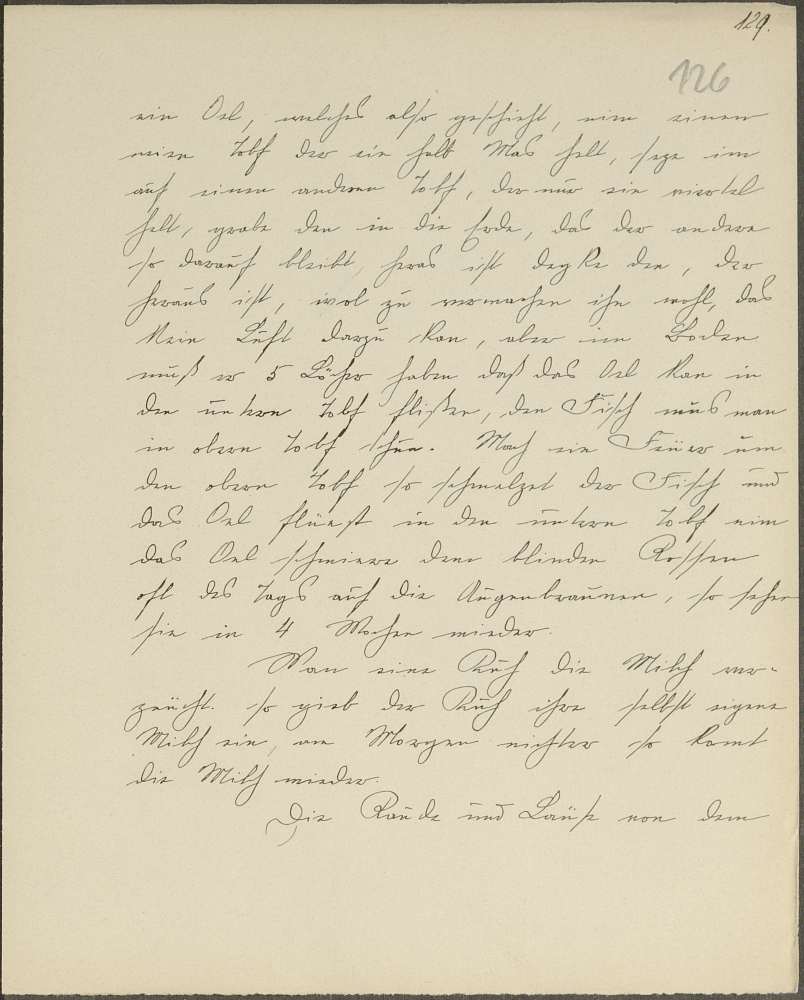 129.
126
ein Oel, welches also geschieht, nim einen
neien Tobf der ein halb Mas helt, seze im
auf einen anderen Tobf, der nur ein viertel
helt, grabe den in die Erde, das der andere
so darauf bleibt, heras ist degke den, der
heraus ist, wol zu vermachen ihn wohl, das
kein Luft darzu kan, aber im Boden
muß er 5 Löcher haben daß das Oel kan in
den untern Tobf flißen, den Fisch mus man
in obern Tobf thun. Mach ein Feuer um
den obern Tobf so schmelzet der Fisch und
das Oel flüest in den untern Tobf nim
das Oel schmiere dem blinden Rossen
oft des Tags auf die Augenbraunen, so sehen
sie in 4 Wochen wieder.
Wan eine Kuh die Milch ver-
zeücht. so gieb der Kuh ihre selbst eigene
Milch ein, am Morgen nichter so komt
die Milch wieder.
Die Raude und Läuse von dem